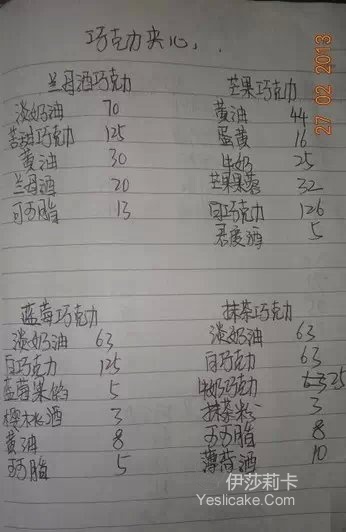 巧克力夹心
兰姆酒巧克力
淡奶油 70
苦甜巧克力 125
黄油 30
兰姆酒 20
可可脂 13
芒果巧克力
黄油 44
蛋黄 16
牛奶 25
芒果果蓉 32
白巧克力 126
君度酒 5
蓝莓巧克力
淡奶油 63
白巧克力 125
蓝莓果馅 5
樱桃酒 3
黄油 8
可可脂 5
抹茶巧克力
淡奶油 63
白巧克力 63
牛奶巧克力 25
抹茶粉 3
可可脂 8
薄荷酒 10
27 02 2013
伊莎莉卡
Yeslicake.Com